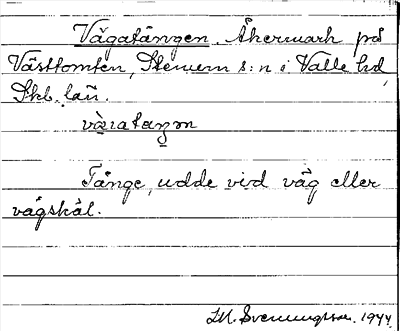 Vägatången. Åkermark på
Västtomten, Stenum s:n i Valle hd,
Skb. län.
Tånge, udde vid väg eller
vägskäl.
Svenningsson. 1944